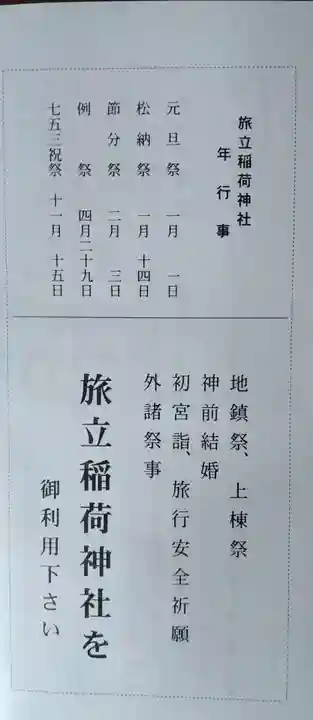 旅立稲荷神社
年行事
元旦祭 一月 一日
松納祭 一月 十四日
節分祭 二月 三日
例祭 四月二十九日
七五三祝祭 十一月 十五日
地鎮祭、上棟祭
神前結婚
初宮詣、旅行安全祈願
外諸祭事
旅立稲荷神社を
御利用下さい